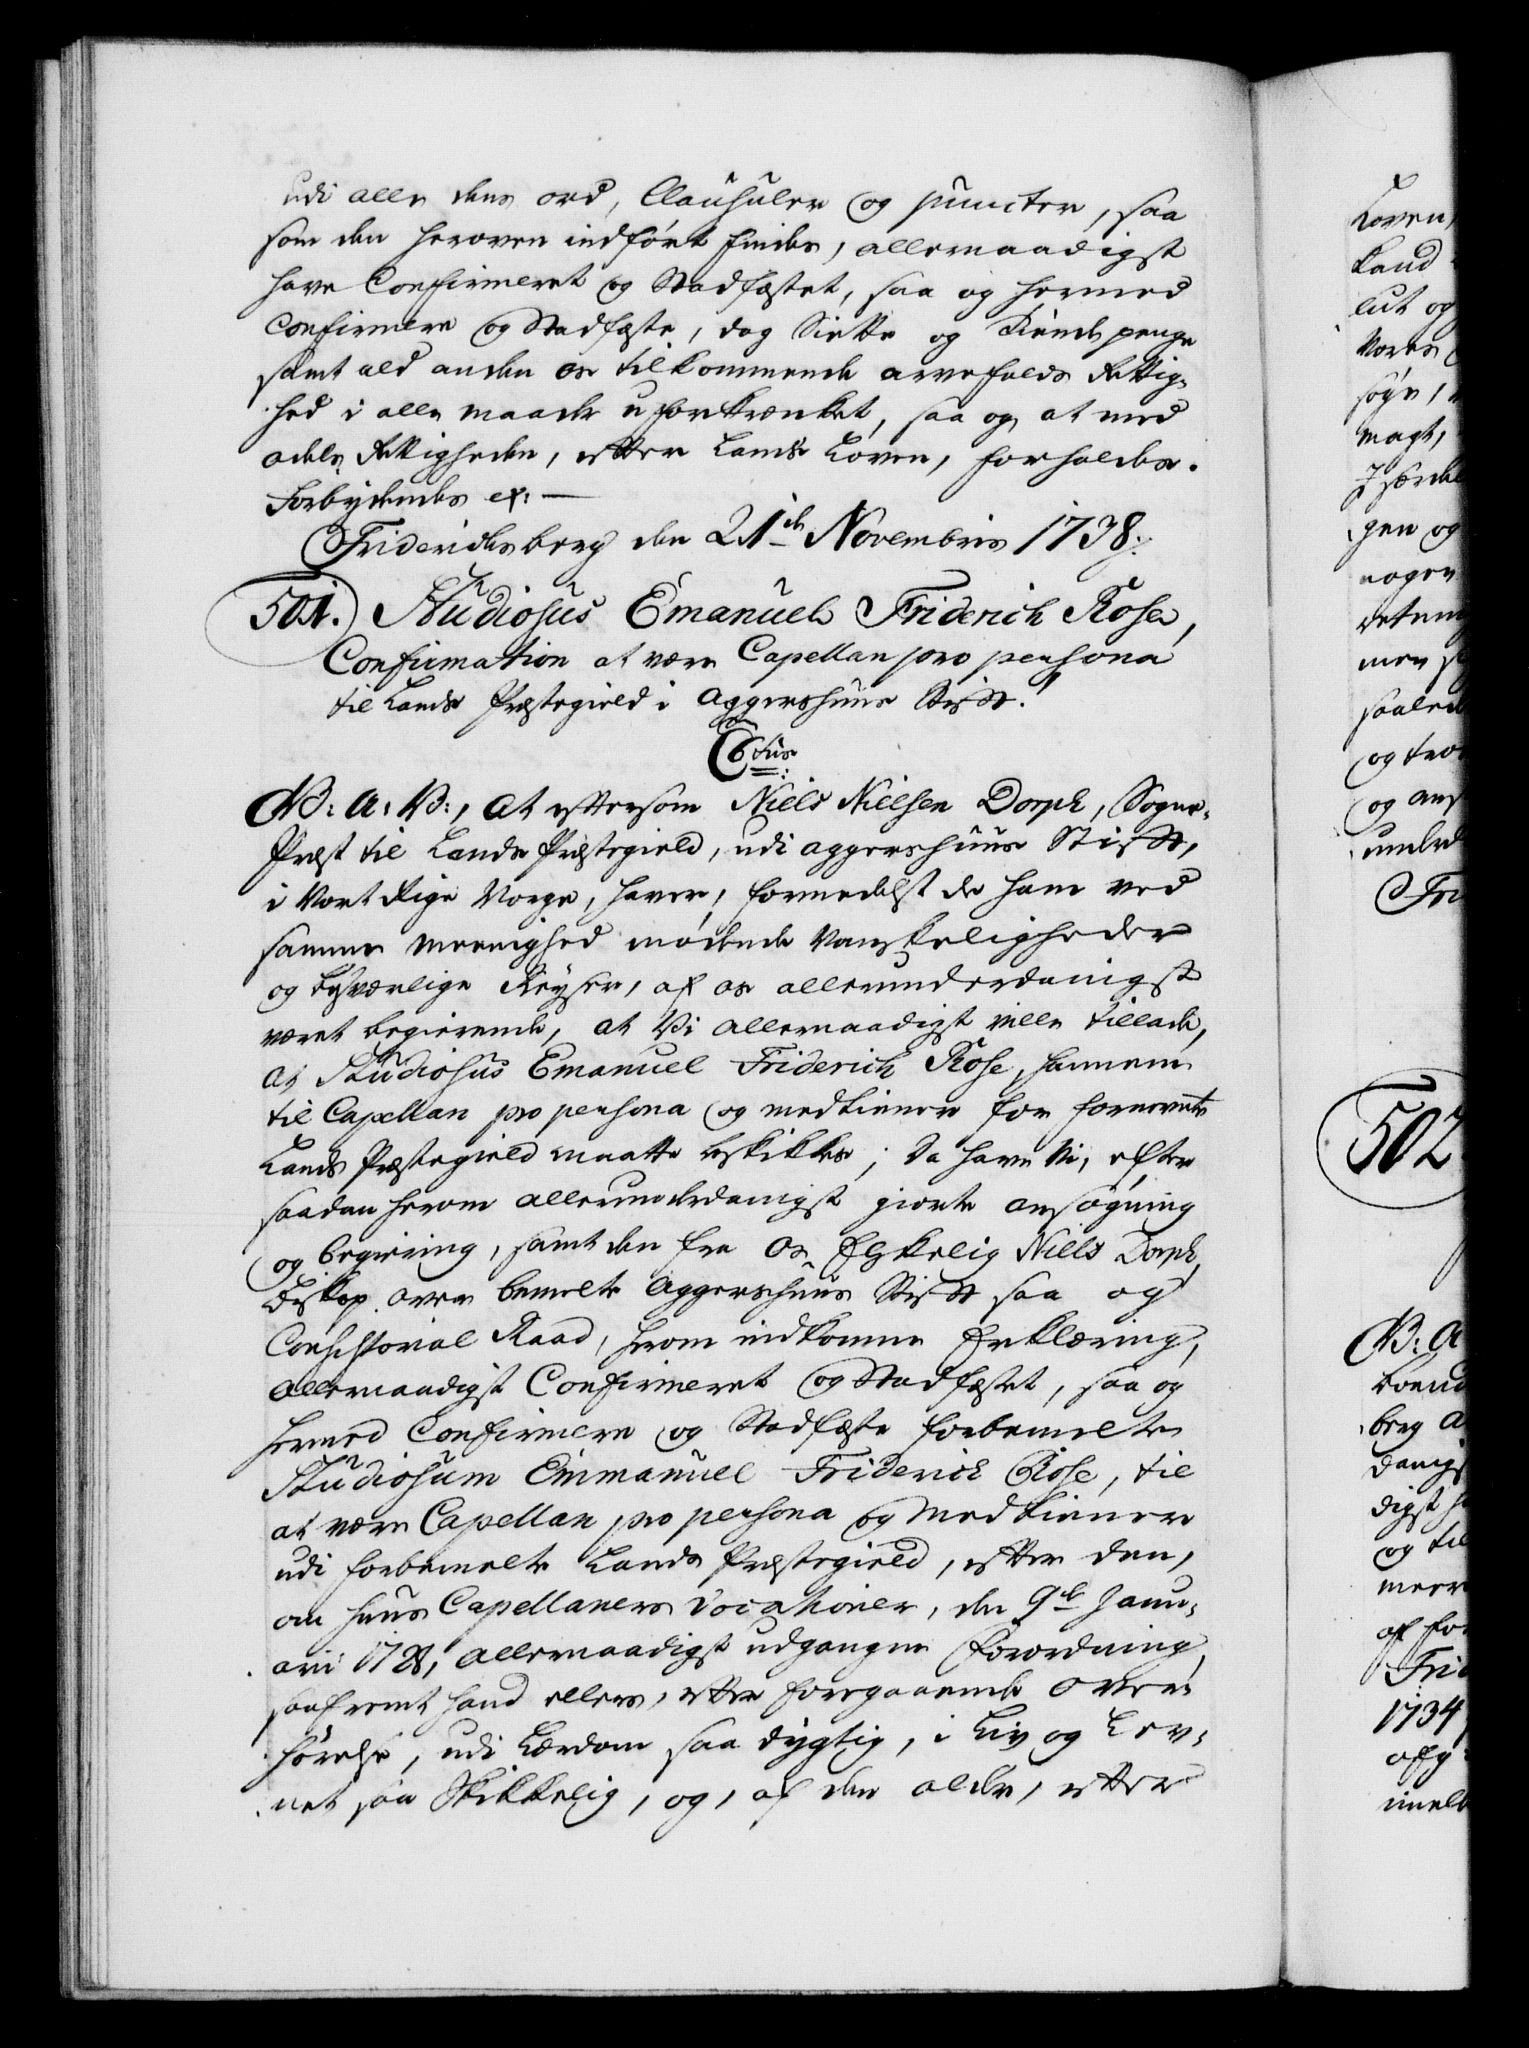 udi alle dens ord, Clausuler og puncter, saa
som den heroven indført findes, allernaadigst
have Confirmeret og Stadfæstet, saa og hermed
Confirmere og Stadfæste, dog Siette og Tiende penge
samt ald anden os tilkommende arvefalds Rettig-
hed i alle maade uforkrænket, saa og at med
odels Rettigheden, efter Lands Loven, forholdes.
Forbydendes etc:
Friderichsberg den 21de Novembris 1738.
501. Studiosus Emanuel Friderich Rose,
Confirmation at være Capellan pro persona
til Lands Præstegield i Aggershuus Stift.
C6tus
V: A: V:, at eftersom Niels Nielsen Dorph, Sogne-
Præst til Lands Præstegield, udi Aggershuus Stift,
i Vort Rige Norge, haver, formedelst de ham ved
samme Meenighed mødende Vanskeligheder
og besværlige Reyser, af os allerunderdanigst
været begierende, at Vi allernaadigst ville tillade,
at Studiosus Emanuel Friderich Rose, hannem
til Capellan pro persona og medtienere for fornevnte
Lands Præstegield maatte beskikkes; Da have Vi, efter
saadan herom allerunderdanigst giorte ansøgning
og begiering, samt den fra Os Elskelig Niels Dorph,
Biskop over bemelte Aggershuus Stift saa og
Consistorial Raad, herom indkomne Erklæring,
allernaadigst Confirmeret og Stadfæstet, saa og
hermed Confirmere og Stadfæste forbemelte
Studiosum Emmanuel Friderich Rose, til
at være Capellan pro persona og Medtienere
udi forbemelte Lands Præstegield, efter den,
om Huus Capellaners Vocationer, den 9de Janu-
arii 1728, allernaadigst udgangne Forordning,
saafremt hand ellers, efter foregaaende Over-
hørelse, udi Lærdom saa dygtig, i Liv og Lev-
net saa Skikkelig, og, af den alder, efter
Loven,
Land
lut og
Vores
søge,
magt,
gen og
nogen
men
og
og ans
Fri
502
V: A
berg A
danigst
digst
og til
af for
Fri
1734